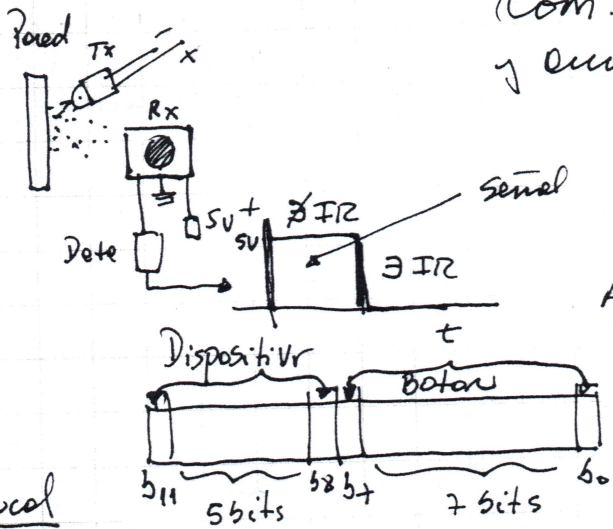 Pared
Tx
x
Rx
y
5V +
Data
5V ∄ IR
señal
∃ IR
t
Dispositivo
Boton
b11
5 bits
b8
b7
7 bits
b0